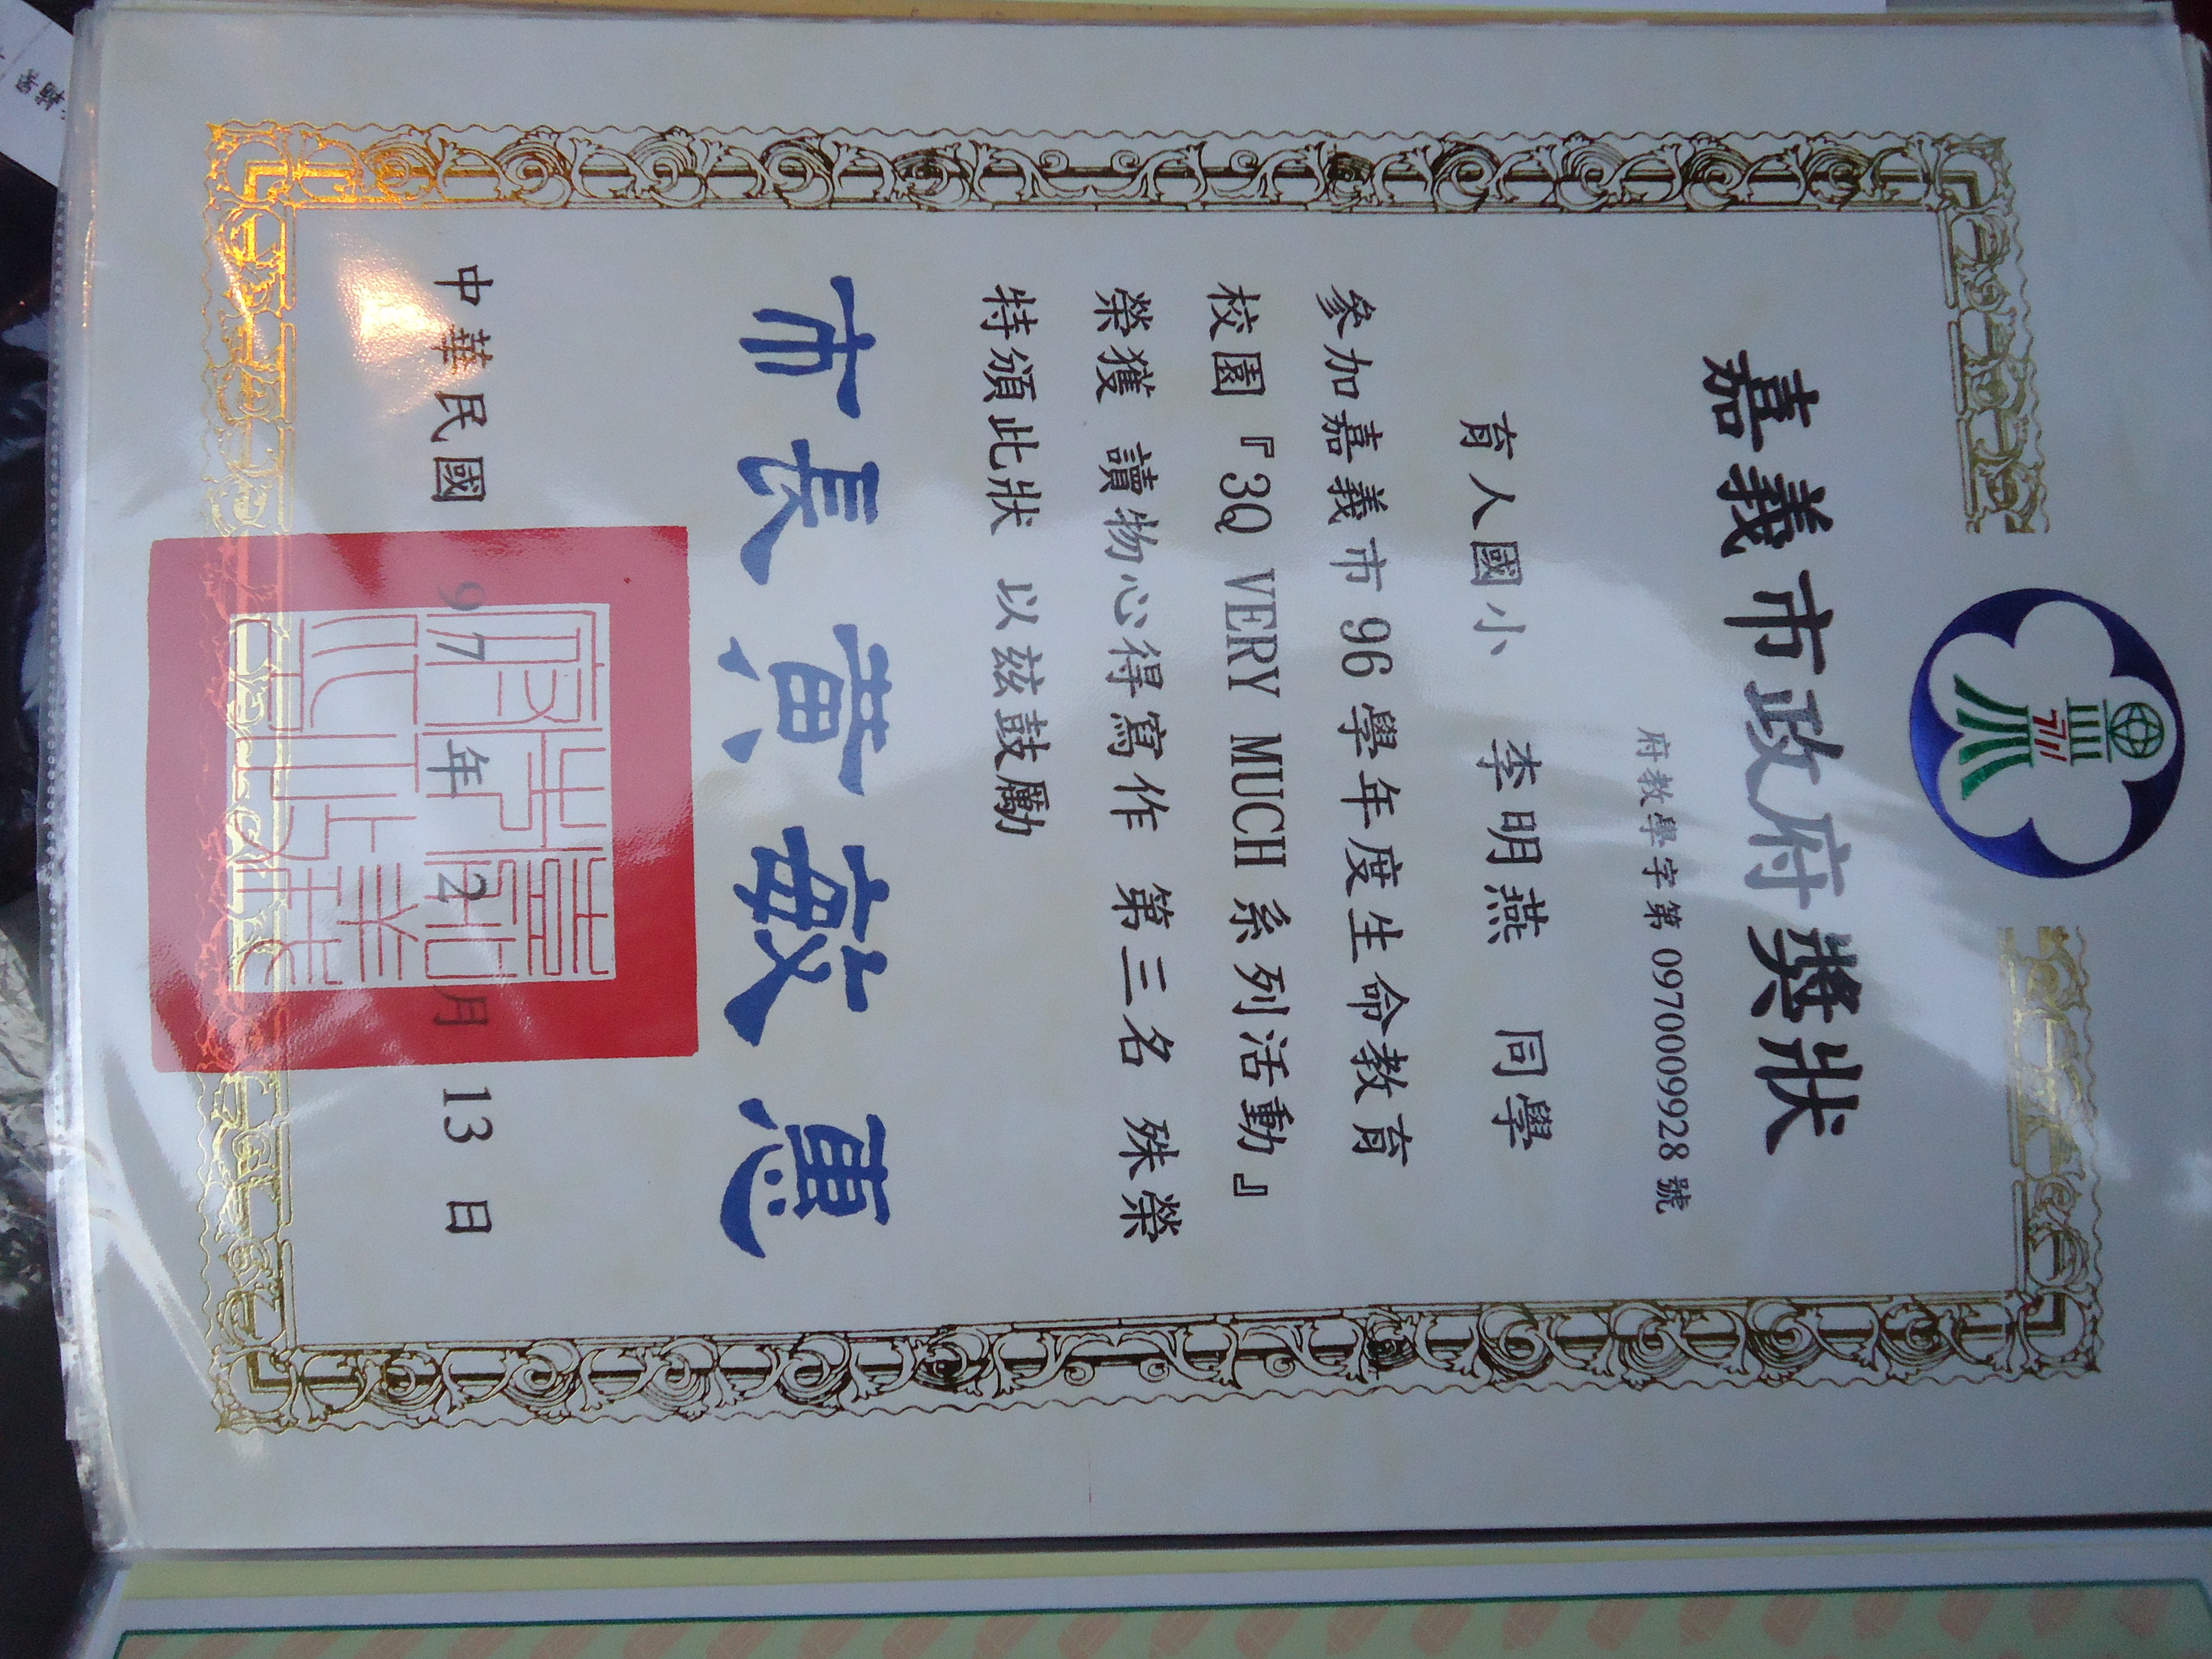 嘉義市政府獎狀
府教學字第 0970009928 號
育人國小 李明燕 同學
參加嘉義市 96 學年度生命教育
校園『3Q VERY MUCH 系列活動』
榮獲 讀物心得寫作 第三名 殊榮
特頒此狀 以茲鼓勵
市長黃敏惠
中華民國 97 年 2 月 13 日